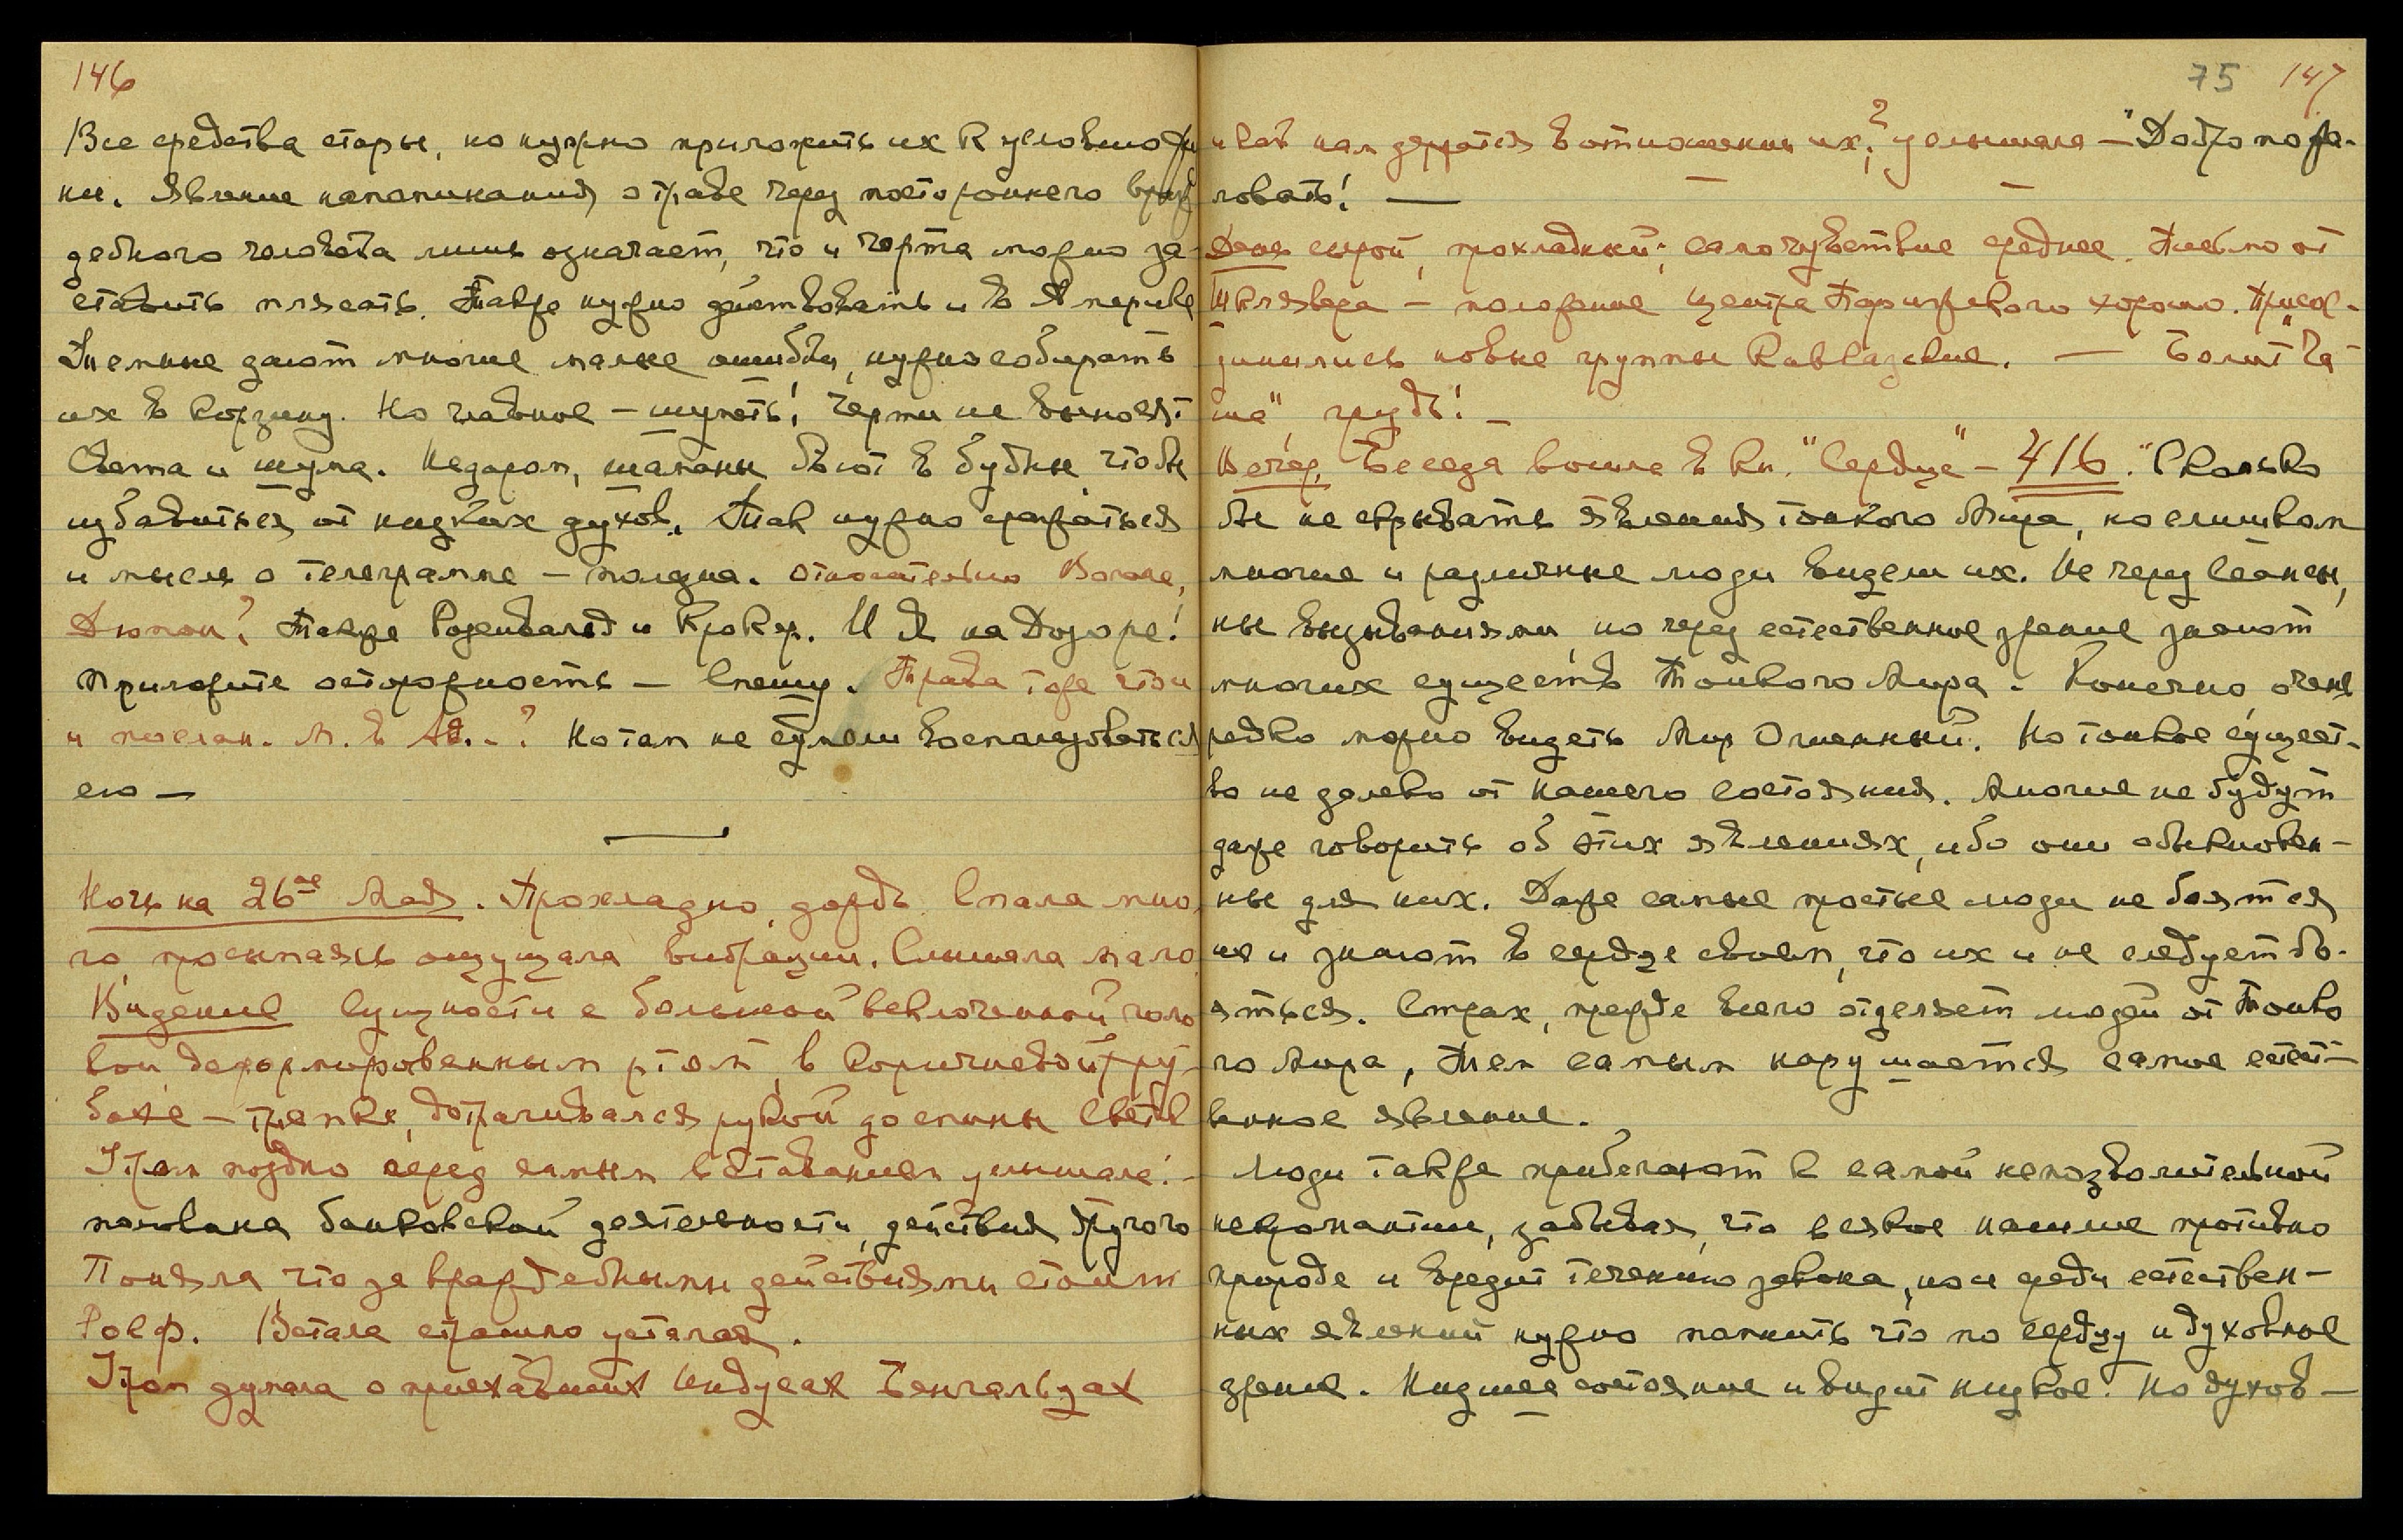 146
Все средства стары, но нужно приложить их к условию жи
ни. Явление напоминания о траве через постороннего враж
дебного человека лишь означает, что и чорта можно за-
ставить плясать. Также нужно действовать и в Америке
Темные дают многие малые ошибки, нужно собирать
их в корзину. Но главное – шуметь! Черти не выносят
Света и шума. Недаром, шаманы бьют в бубны, чтобы
избавиться от низких духов. Так нужно сражаться
и мысль о телеграмме – полезна. Относительно
Дюпон? Также Розенвальд и Крокер. И Я на Дозоре!
Приложите осторожность – Спешу. Трава тоже что и
и послан. М. в Ам. – ? Но там не сумели воспользоваться
ею –
Ночь на 26ое Мая. Прохладно, дождь. Спала мно
го, просыпаясь ощущала вибрации. Слышала мало
Видение Сущности с большой всклоченной голо
вой, деформированным ртом, в коричневой гру-
бой – тряпке, дотрагивался рукой до спины Свет.
Утром поздно перед самым вставанием услышала: –
половина банковской деятельности, действия другого
Поняла, что за враждебными действиями стоит
Роеф. Встала страшно усталая.
Утром думала о приехавших Индусах Бенгальцах
75 147
и как нам держаться в отношении их? услышала – "Добро пожа-
ловать! –
День сырой, прохладный; самочувствие среднее. Письмо от
Шклявера – положение Центра Парижского хорошо. Присое-
динились новые группы Кавказские. – Болит "Ча
ша" грудь! –
Вечер. Беседа вошла в кн. "Сердце" – 416. "Сколько
бы не скрывать явления тонкого Мира, но слишком
многие и различные люди видели их. Не через сеансы,
ны вызываниями, но через естественное зрение знают
многих существ Тонкого Мира. Конечно, очень
редко можно видеть Мир Огненный. Но тонкое сущест-
во не далеко от нашего состояния. Многие не будут
даже говорить об этих явлениях, ибо они обыкновен-
ны для них. Даже самые простые люди не боятся
их и знают в сердце своем, что их и не следует бо-
яться. Страх, прежде всего отделяет людей от Тонко
го Мира, тем самым нарушается самое естест-
венное явление.
Люди также прибегают к самой непозволительной
некромантии, забывая, что всякое насилие противно
природе и вредит течению закона, но и среди естествен-
ных явлений нужно помнить что по сердцу и духовное
зрение. Низшее состояние и видит низкое. Но духов-